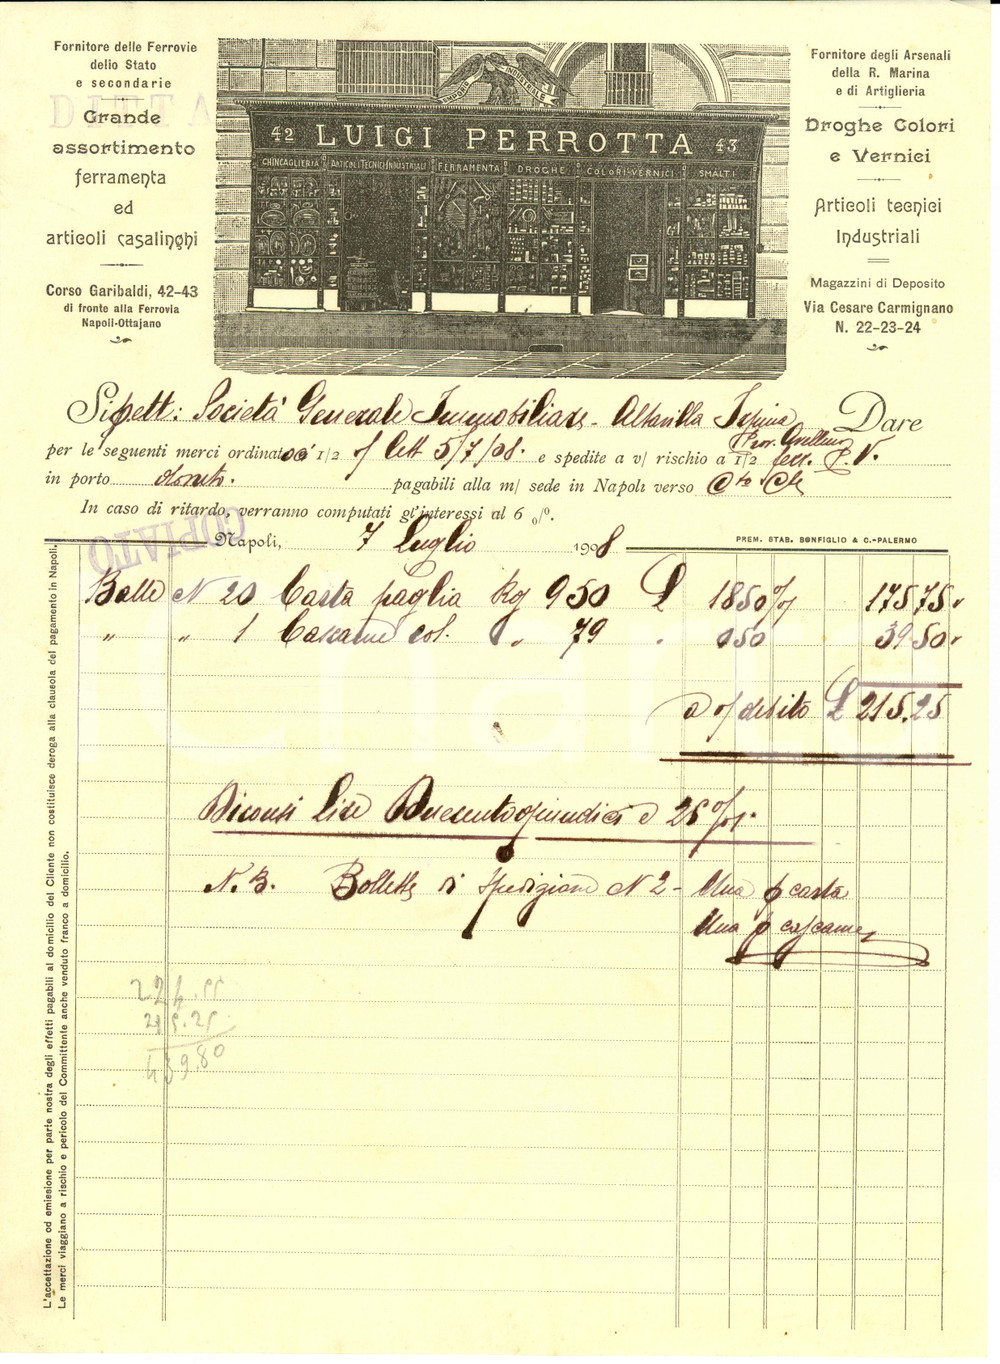 Fornitore delle Ferrovie
dello Stato
e secondarie
DITTA
Grande
assortimento
ferramenta
ed
articoli casalinghi
Corso Garibaldi, 42-43
di fronte alla Ferrovia
Napoli-Ottajano
INDUSTRIALE
42 LUIGI PERROTTA 43
CHINCAGLIERIA ARTICOLI TECNICI INDUSTRIALI FERRAMENTA DROGHE COLORI-VERNICI SMALTI
Fornitore degli Arsenali
della R. Marina
e di Artiglieria
Droghe Colori
e Vernici
Articoli tecnici
Industriali
Magazzini di Deposito
Via Cesare Carmignano
N. 22-23-24
Spett: Società Generale Immobiliare - Altavilla Irpina Dare
Prov. Avellino
per le seguenti merci ordinate a 1/2 Lett 5/7/08. e spedite a v/ rischio a 1/2 ferr. P. V.
in porto pagabili alla m/ sede in Napoli verso
In caso di ritardo, verranno computati gl'interessi al 6 o/o.
COPIATO
Napoli, 7 Luglio 1908
PREM. STAB. BONFIGLIO & C.-PALERMO
Balle N 20 Carta paglia Kg 950 £ 1850 % 175 75
" " 1 Cascame col. " 79 " 050 39 50
a v/ debito £ 215.25
Diconsi Lire Duecentoquindici e 25 %
N. B. Bollette di spedizione N 2 - Una p carta
Una p cascame
224.55
215.25
439.80
L'accettazione od emissione per parte nostra degli effetti pagabili al domicilio del Cliente non costituisce deroga alla clausola del pagamento in Napoli.
Le merci viaggiano a rischio e pericolo del Committente anche venduto franco a domicilio.